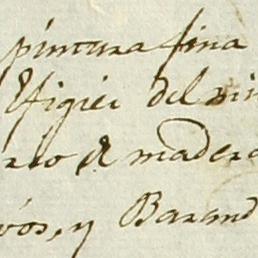 pintura fina
Efigiei del
de madera
y Barand